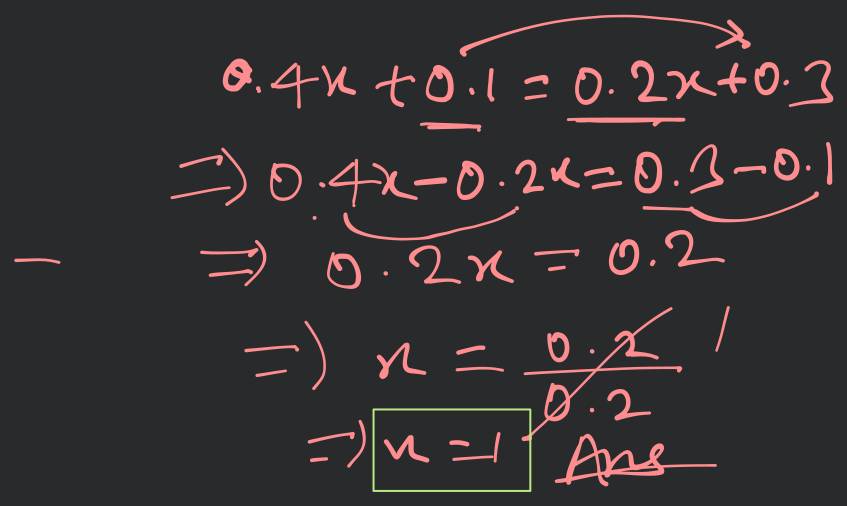 0.4x + 0.1 = 0.2x + 0.3
⇒ 0.4x - 0.2x = 0.3 - 0.1
⇒ 0.2x = 0.2
⇒ x = 0.2/0.2 1
⇒ x = 1 Ans